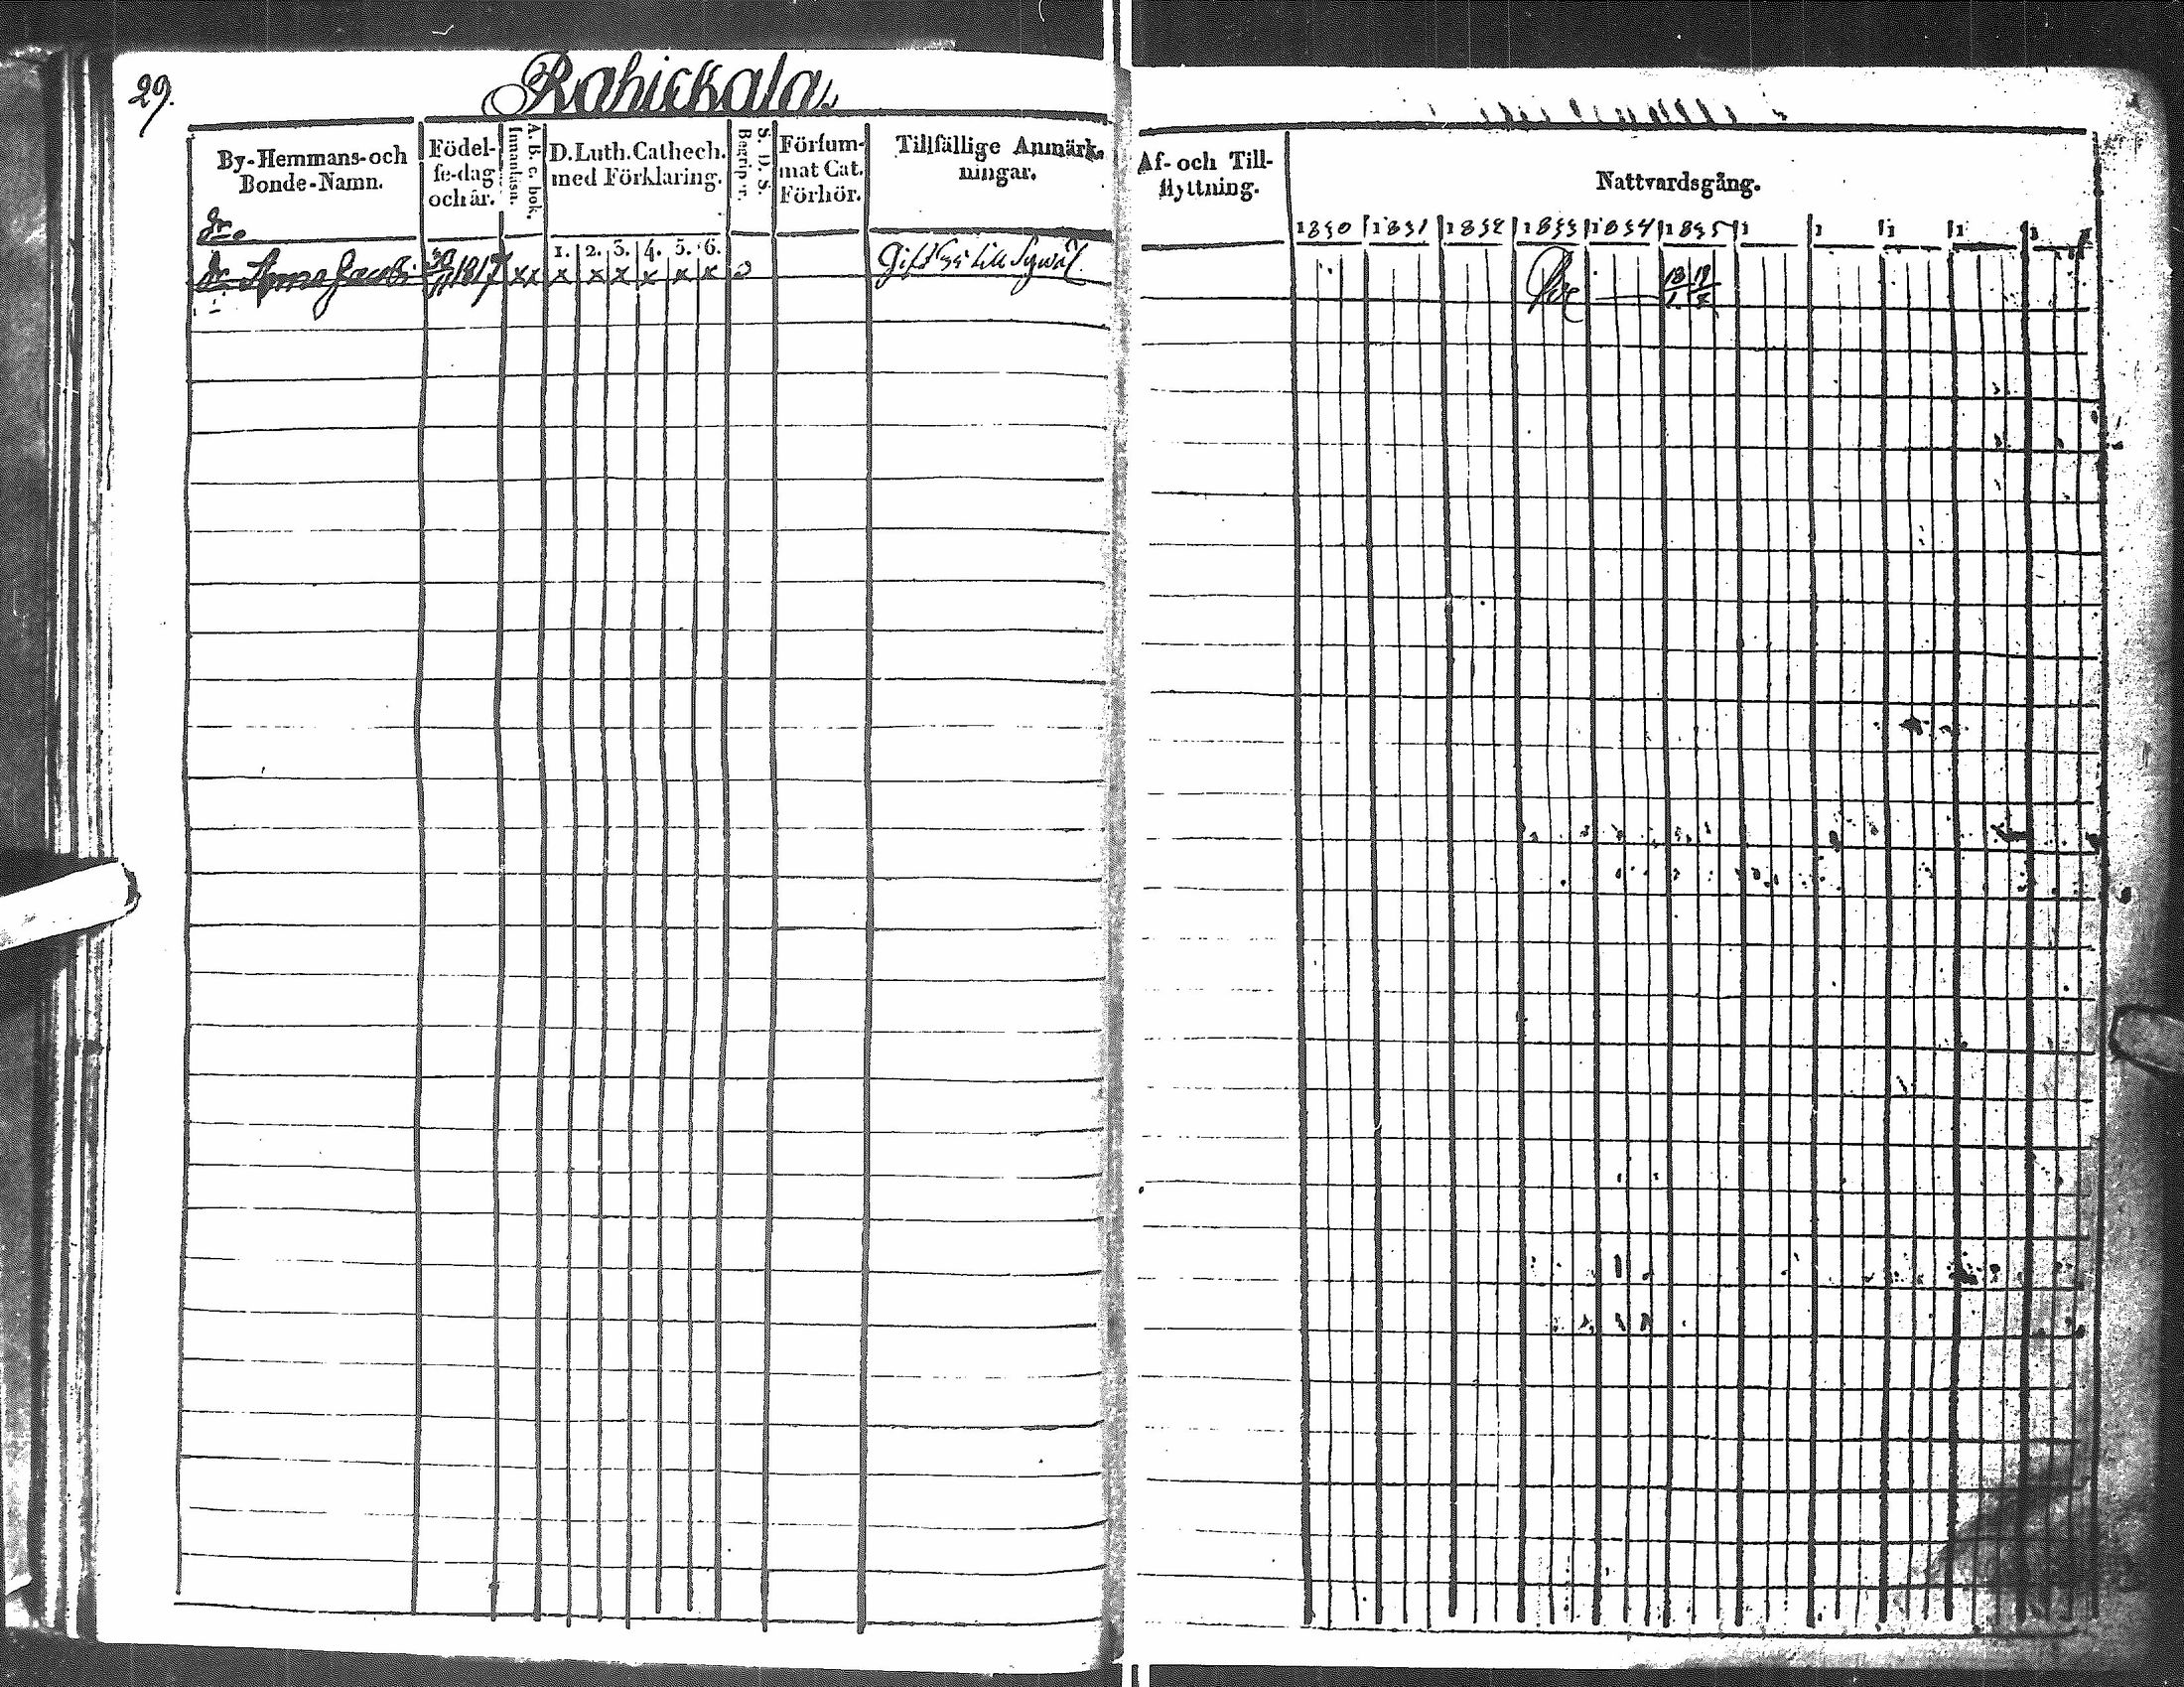 29.
Rahickala.
By-Hemmans-och
Bonde-Namn.
Födel-
se-dag
och år.
A B c bok.
Innanläsn.
D. Luth. Cathech.
med Förklaring.
1. 2. 3. 4. 5. 6.
S. D. S.
Begriper.
Försum-
mat Cat.
Förhör.
Tillfällige Anmärk-
ningar.
dr.
dr. Anna Jacobi 1817 x x x x x x x x
Gift till
Af- och Till-
flyttning.
Nattvardsgång.
1830 1831 1832 1833 1834 1835 1 1 1 1 1
18 19